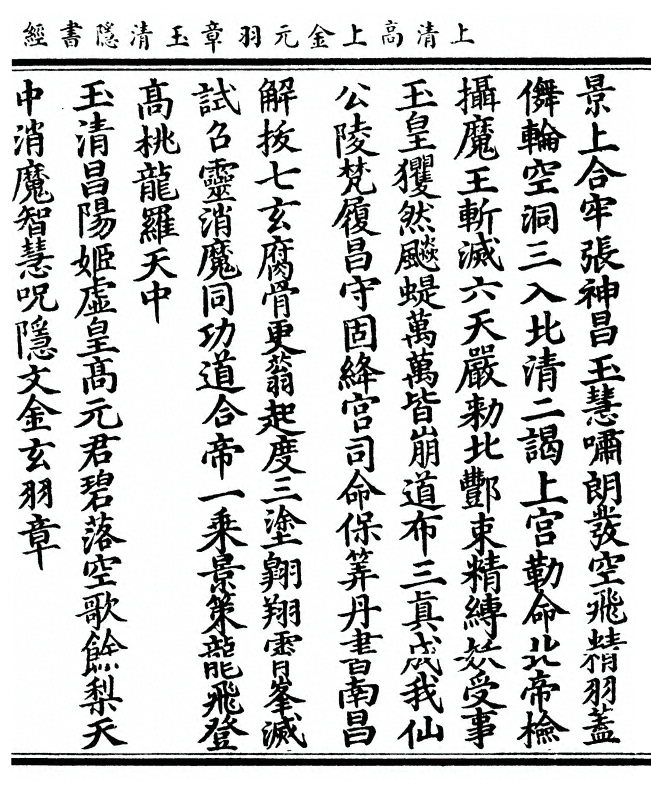 上清高上金元羽章玉清隱書經
景上合牢張神昌玉慧嘯朗發空飛精羽蓋
儛輪空洞三入北清二謁上宮勒命北帝檢
攝魔王斬滅六天嚴勑北酆束精縛妖受事
玉皇玃然飈蝭萬萬皆崩道布三真成我仙
公陵梵履昌守固絳宮司命保筭丹書南昌
解拔七玄腐骨更蓊起度三塗翱翔霄峯滅
試召靈消魔同功道合帝一乘景策龍飛登
高桃龍羅天中
玉清昌陽姬虛皇高元君碧落空歌餘梨天
中消魔智慧呪隱文金玄羽章